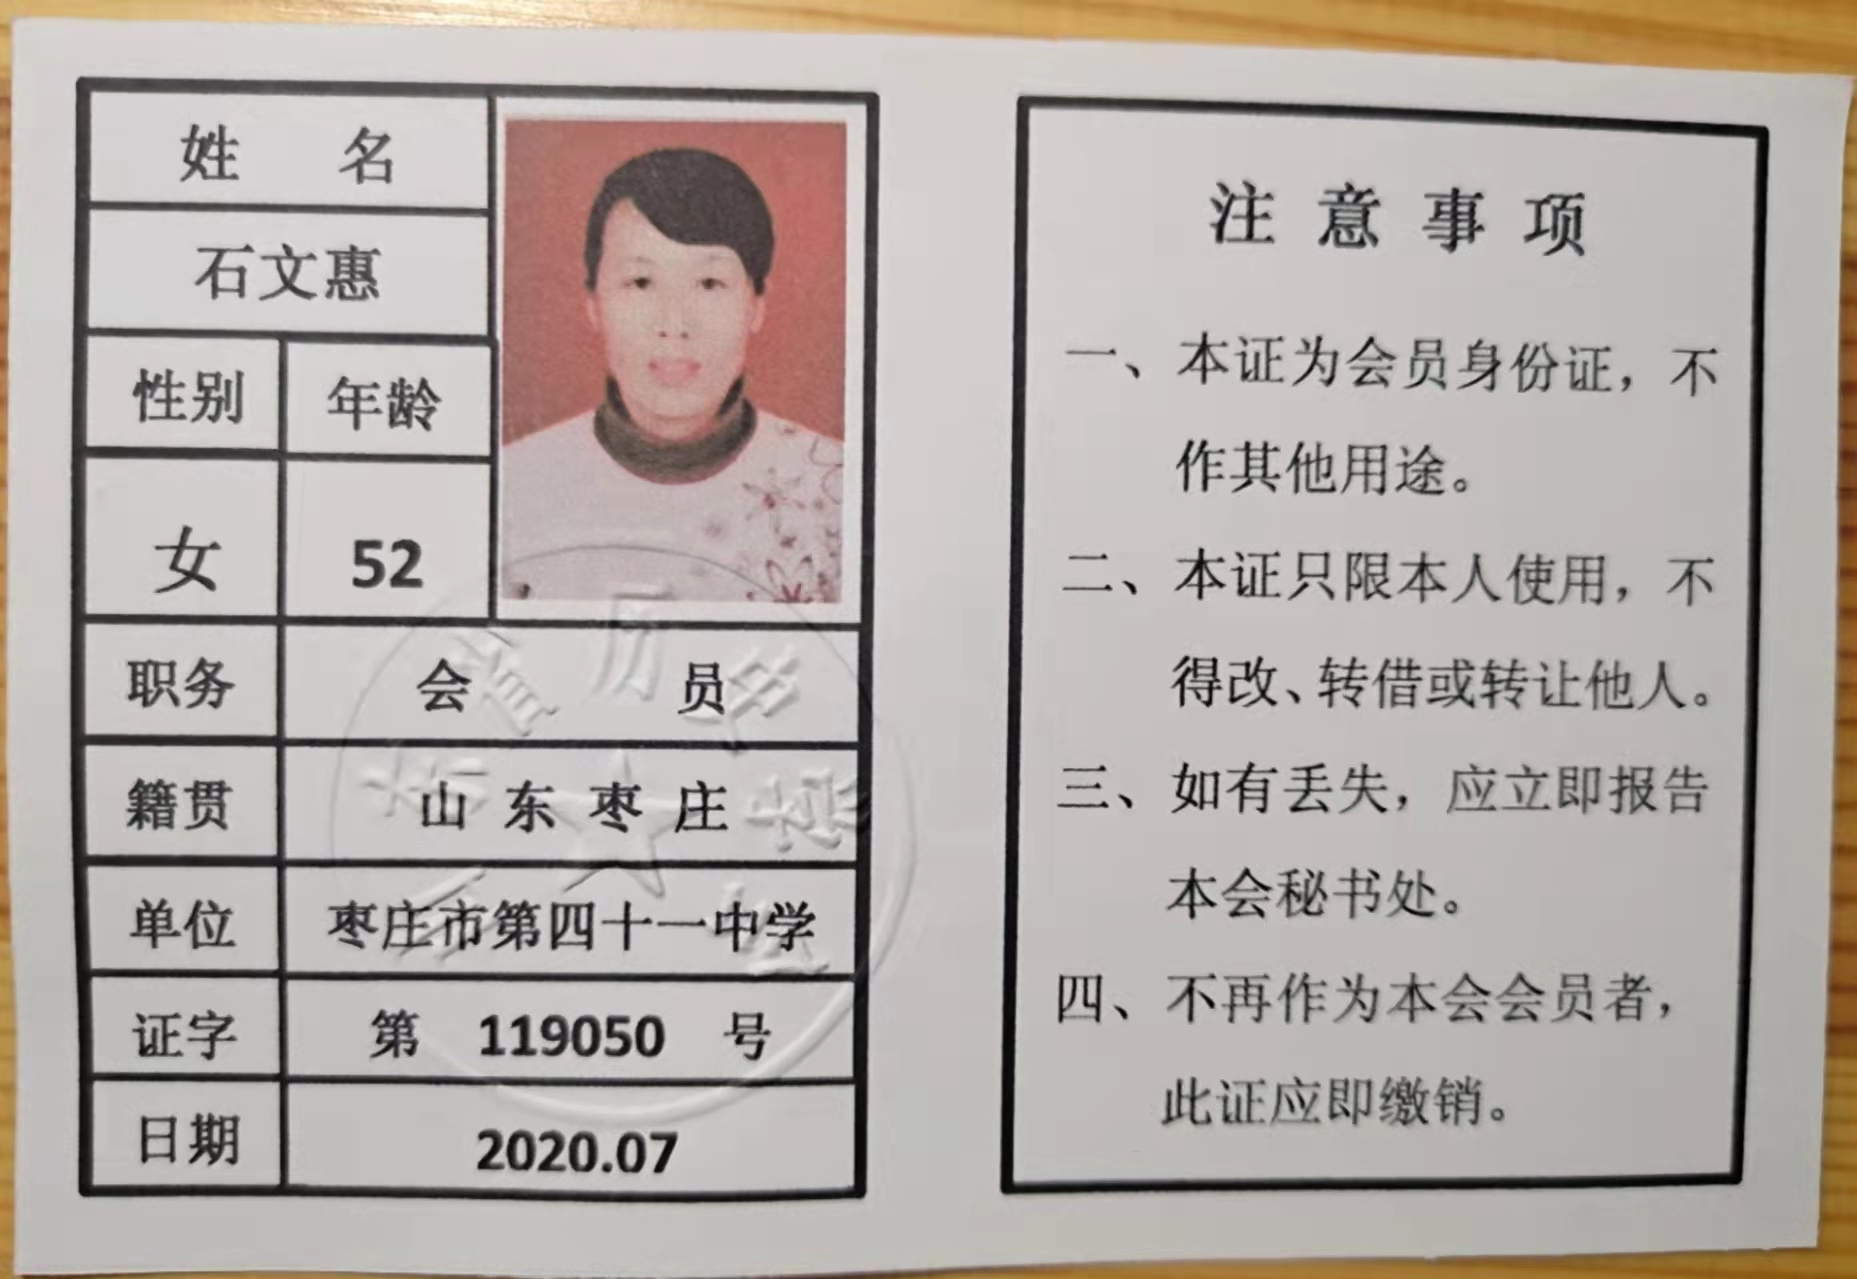 姓 名
石文惠
性别 年龄
女 52
职务 会 员
籍贯 山东枣庄
单位 枣庄市第四十一中学
证字 第 119050 号
日期 2020.07
注意事项
一、本证为会员身份证，不
作其他用途。
二、本证只限本人使用，不
得改、转借或转让他人。
三、如有丢失，应立即报告
本会秘书处。
四、不再作为本会会员者，
此证应即缴销。